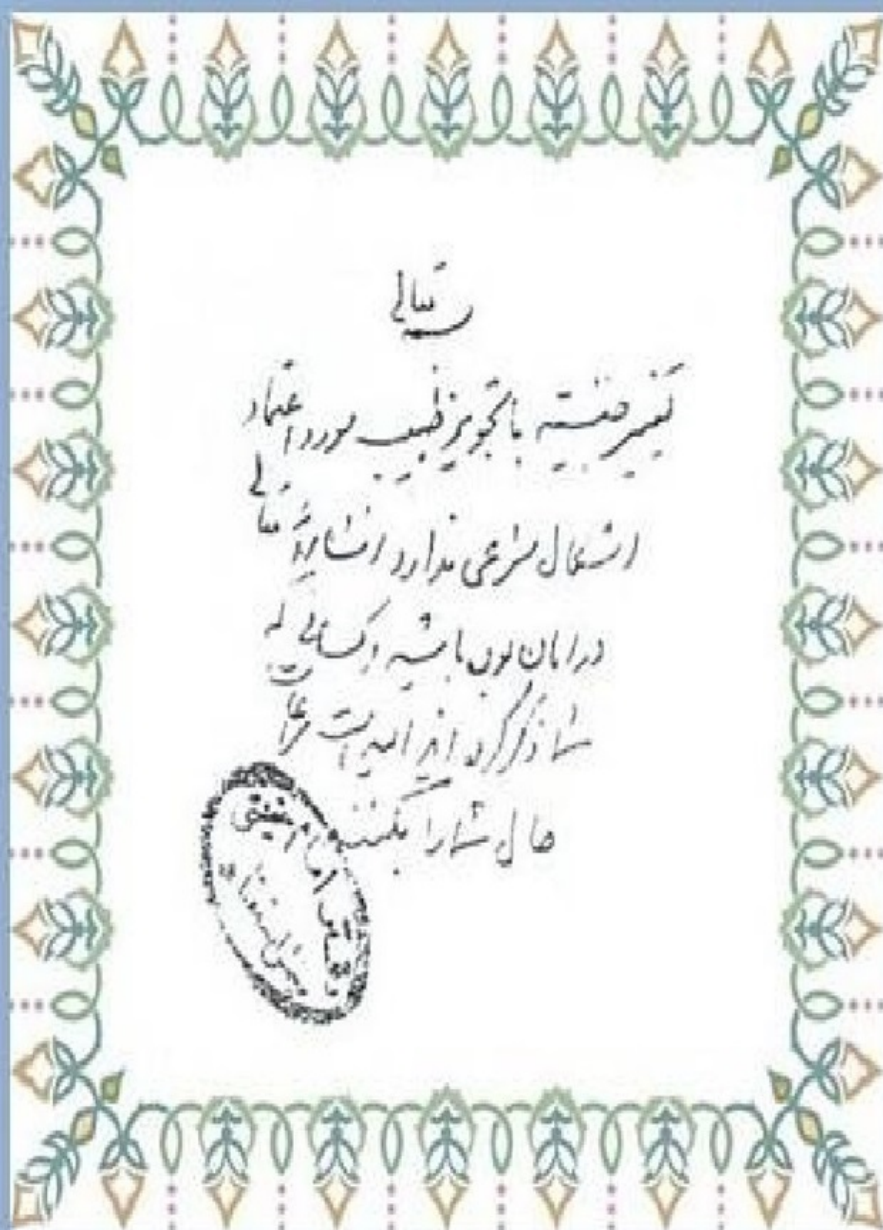 بسمه تعالی
تغییر جنسیت با تجویز طبیب مورد اعتماد
اشکال شرعی ندارد انشاءالله تعالی
در امان بوده باشید و کسانی که
شما ذکر کرده‌اید امید است مراعات
حال شما را بکنند